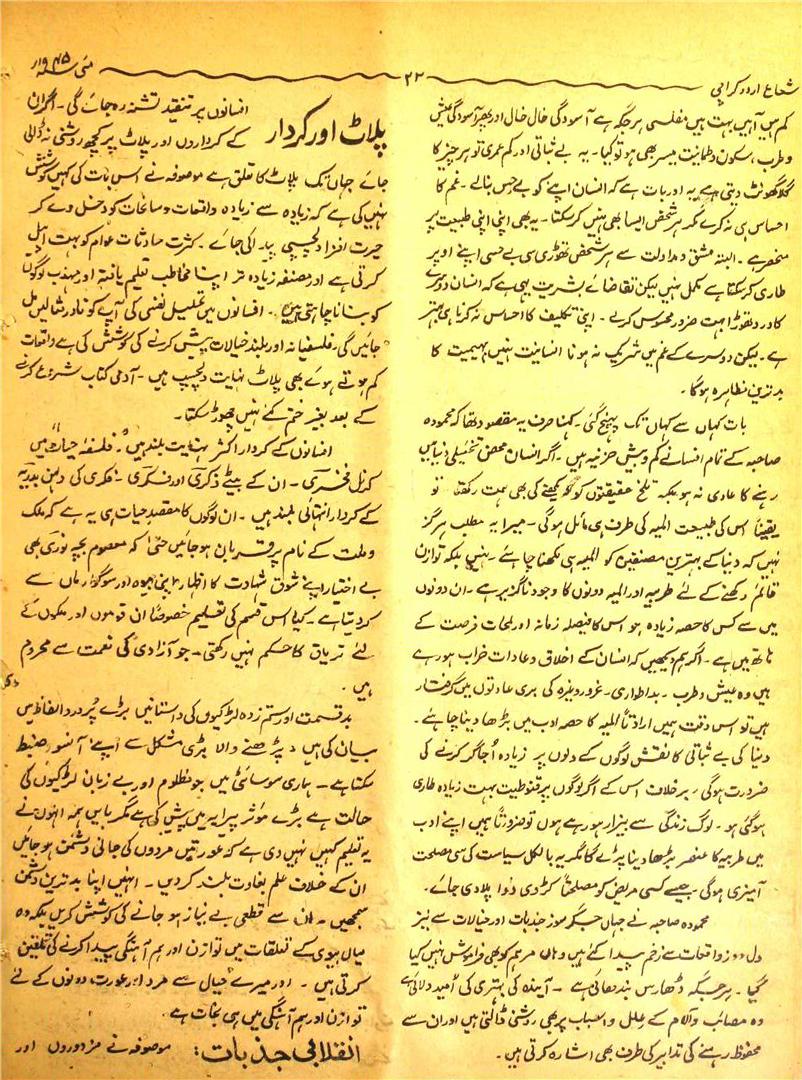 شعاع اردو کراچی
۲۲
مئی ۱۹۴۵ء
کم ہیں آہیں بہت ہیں مفلسی ہر جگہ ہے آسودگی خال خال اور پھر آسودگی عیش
و طرب، سکون و طمانیت میسر بھی ہو تو کیا۔ یہ بے ثباتی اور کم عمری تو ہر چیز کا
گلا گھونٹ دیتی ہے یہ اور بات ہے کہ انسان اپنے کو بے حس بنا لے۔ غم کا
احساس ہی نہ کرے مگر ہر شخص ایسا بھی نہیں کر سکتا۔ یہ بھی اپنی اپنی طبیعت پر
منحصر ہے۔ البتہ مشق و مداومت سے ہر شخص تھوڑی سی بے حسی اپنے اوپر
طاری کر سکتا ہے مکمل نہیں لیکن تقاضائے بشریت یہی ہے کہ انسان دوسرے
کا درد تھوڑا بہت ضرور محسوس کرے۔ اپنی تکلیف کا احساس نہ کرنا ہی بہتر
ہے۔ لیکن دوسرے کے غم میں شریک نہ ہونا انسانیت نہیں بہیمیت کا
بدترین مظاہرہ ہوگا۔
بات کہاں سے کہاں تک پہنچ گئی۔ کہنا صرف یہ مقصود تھا کہ محمودہ
صاحبہ کے تمام افسانے کم و بیش حزنیہ ہیں۔ اگر انسان محض تخئیلی دنیا میں
رہنے کا عادی نہ ہو بلکہ تلخ حقیقتوں کو دیکھنے کی بھی ہمت رکھتا تو
یقیناً اس کی طبیعت المیہ کی طرف ہی مائل ہوگی۔ میرا یہ مطلب ہرگز
نہیں کہ دنیا کے بہترین مصنفین کو المیہ ہی لکھنا چاہئے۔ نہیں بلکہ توازن
قائم رکھنے کے لئے طربیہ اور المیہ دونوں کا وجود ناگزیر ہے۔ ان دونوں
میں سے کس کا حصہ زیادہ ہو اس کا فیصلہ زمانہ اور لمحات فرصت کے
ہاتھ میں ہے۔ اگر ہم دیکھیں کہ انسان کے اخلاق و عادات خراب ہو رہے
ہیں وہ عیش و طرب۔ بداطواری۔ غرور وغیرہ کی بری عادتوں میں گرفتار
ہیں تو اس وقت ہمیں ارادتاً المیہ کا حصہ ادب میں بڑھا دینا چاہئے۔
دنیا کی بے ثباتی کا نقش لوگوں کے دلوں پر زیادہ اُجاگر کرنے کی
ضرورت ہوگی۔ برخلاف اس کے اگر لوگوں پر قنوطیت بہت زیادہ طاری
ہو گئی ہو۔ لوگ زندگی سے بیزار ہو رہے ہوں تو ضرورتاً ہمیں اپنے ادب
میں طربیہ کا عنصر بڑھا دینا پڑے گا مگر یہ بالکل سیاست کی سی مصلحت
آمیزی ہوگی۔ جیسے کسی مریض کو مصلحتاً کڑوی دوا پلا دی جائے۔
محمودہ صاحبہ نے جہاں جگر سوز جذبات اور خیالات سے نیز
دلدوز واقعات سے زخم پیدا کئے ہیں وہاں مرہم کو بھی فراموش نہیں کیا
گیا۔ ہر جگہ ڈھارس بندھائی ہے۔ آیندہ کی بہتری کی اُمید دلائی ہے
وہ مصائب و آلام کے علل و اسباب پر بھی روشنی ڈالتی ہیں اور ان سے
محفوظ رہنے کی تدابیر کی طرف بھی اشارہ کرتی ہیں۔
پلاٹ اور کردار
افسانوں پر تنقید تشنہ رہ جائے گی۔ اگر ان
کے کرداروں اور پلاٹ پر کچھ روشنی نہ ڈالی
جائے جہاں تک پلاٹ کا تعلق ہے موصوفہ نے اس بات کی کہیں کوشش
نہیں کی ہے کہ زیادہ سے زیادہ واقعات و سانحات کو دخل دے کر
حیرت افزا دلچسپی پیدا کی جائے۔ کثرت حادثات عوام کو بہت اپیل
کرتی ہے اور مصنفہ زیادہ تر اپنا مخاطب تعلیم یافتہ اور مہذب لوگوں
کو بنانا چاہتی ہیں۔ افسانوں میں تحلیل نفسی کی آپ کو نادر مثالیں مل
جائیں گی۔ فلسفیانہ اور بلند خیالات پیش کرنے کی کوشش کی ہے واقعات
کم ہوتے ہوئے بھی پلاٹ نہایت دلچسپ ہیں۔ آدمی کتاب شروع کرنے
کے بعد بغیر ختم کئے نہیں چھوڑ سکتا۔
افسانوں کے کردار اکثر نہایت بلند ہیں۔ فلسفہ حیات میں
کرنل فخری۔ ان کے بیٹے ذکری اور فکری۔ فکری کی دلہن بدریہ
کے کردار انتہائی بلند ہیں۔ ان لوگوں کا مقصد حیات ہی یہ ہے کہ ملک
و ملت کے نام پر قربان ہو جائیں حتیٰ کہ معصوم بچہ نوری بھی
بے اختیار اپنے شوق شہادت کا اظہار اپنی بیوہ اور سوگوار ماں سے
کر دیتا ہے۔ کیا اس قسم کی تعلیم خصوصاً ان قوموں اور ملکوں کے
لئے تریاق کا حکم نہیں رکھتی۔ جو آزادی کی نعمت سے محروم
ہیں۔
بدقسمت اور ستم زدہ لڑکیوں کی داستانیں بڑے پُر درد الفاظ میں
بیان کی ہیں۔ پڑھنے والا بڑی مشکل سے اپنے آنسو ضبط
سکتا ہے۔ ہماری سوسائٹی میں جو مظلوم اور بے زبان لڑکیوں کی
حالت ہے بڑے مؤثر پیرایہ میں پیش کی ہے مگر بایں ہمہ انہوں نے
یہ تعلیم کہیں نہیں دی ہے کہ عورتیں مردوں کی جانی دشمن ہو جائیں
ان کے خلاف علم بغاوت بلند کر دیں۔ انہیں اپنا بدترین دشمن
سمجھیں۔ ان سے قطعی بے نیاز ہو جانے کی کوشش کریں بلکہ وہ
میاں بیوی کے تعلقات میں توازن اور ہم آہنگی پیدا کرنے کی تلقین
کرتی ہیں۔ اور میرے خیال سے مرد اور عورت دونوں کے لئے
توازن اور ہم آہنگی میں ہی نجات ہے۔
انقلابی جذبات: موصوفہ نے مزدوروں اور